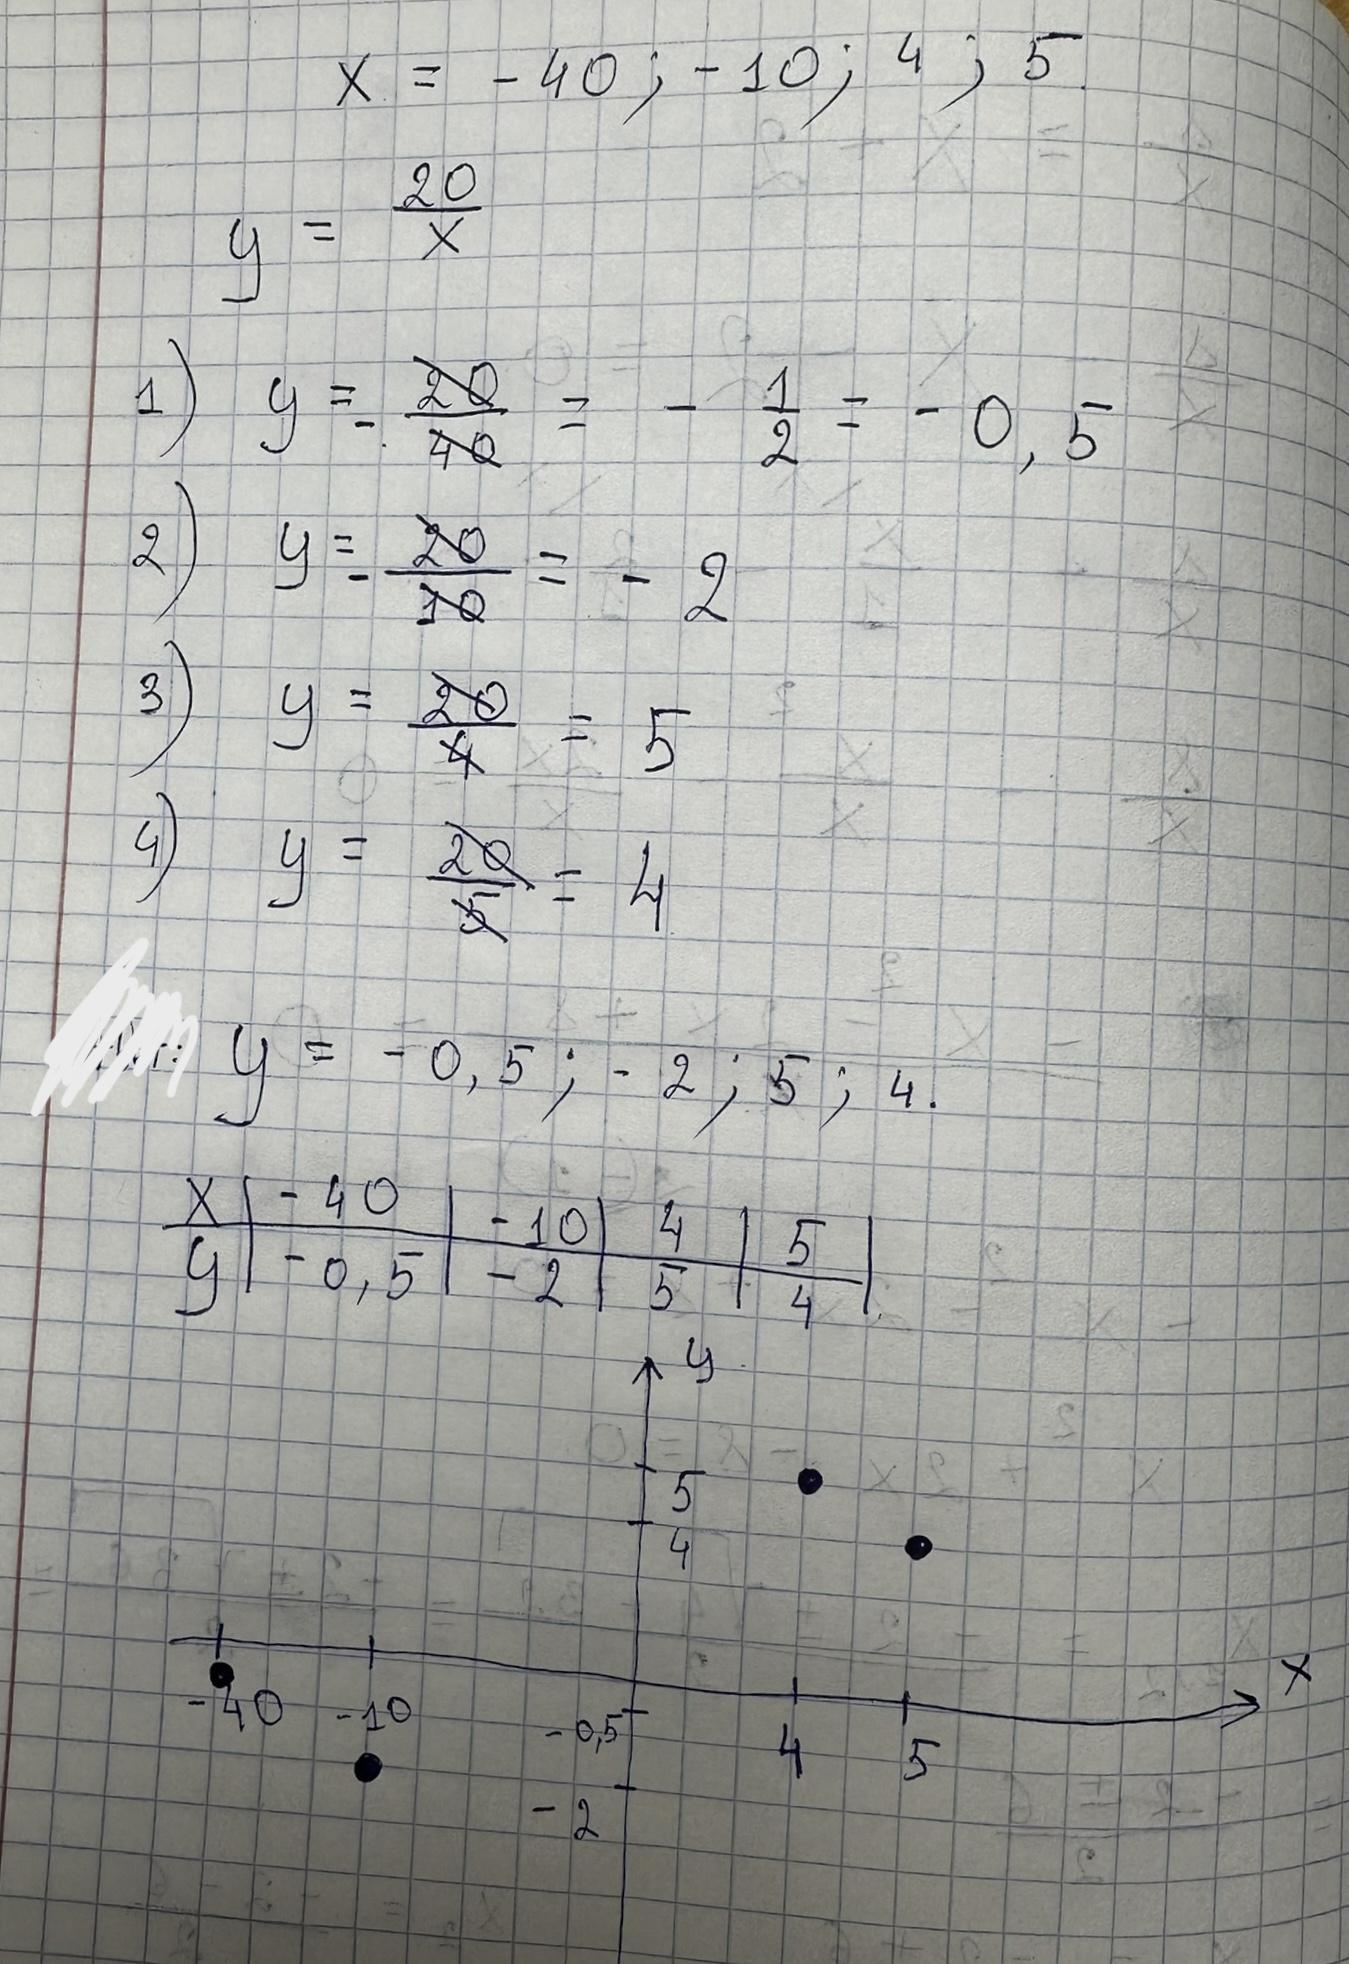 x = -40; -10; 4; 5.
y = 20/x
1) y = - 20/40 = - 1/2 = -0,5
2) y = - 20/10 = -2
3) y = 20/4 = 5
4) y = 20/5 = 4
y = -0,5; -2; 5; 4.
x | -40 | -10 | 4 | 5 |
y | -0,5 | -2 | 5 | 4 |
y
5
4
x
-40 -10 -0,5 4 5
-2